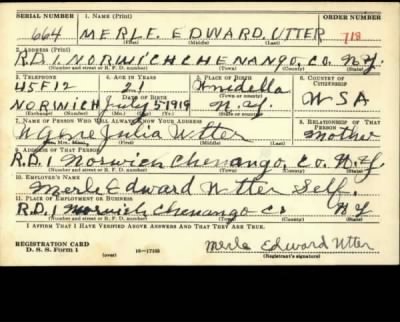 SERIAL NUMBER 1. NAME (Print) ORDER NUMBER
664 MERLE EDWARD UTTER 718
(First) (Middle) (Last)
2. ADDRESS (Print)
R.D.1. NORWICH CHENANGO, CO. N.Y.
(Number and street or R. F. D. number) (Town) (County) (State)
3. TELEPHONE 4. AGE IN YEARS 5. PLACE OF BIRTH 6. COUNTRY OF CITIZENSHIP
45F12 21 Unidella
DATE OF BIRTH
NORWICH July 5 1919 N.Y. USA
7. NAME OF PERSON WHO WILL ALWAYS KNOW YOUR ADDRESS 8. RELATIONSHIP OF THAT PERSON
Julia Utter Mother
9. ADDRESS OF THAT PERSON
R.D.1 Norwich Chenango, Co. N.Y.
(Number and street or R. F. D. number) (Town) (County) (State)
10. EMPLOYER'S NAME
Merle Edward Utter Self.
11. PLACE OF EMPLOYMENT OR BUSINESS
R.D.1 Norwich Chenango Co N.Y.
(Number and street or R. F. D. number) (Town) (County) (State)
I AFFIRM THAT I HAVE VERIFIED ABOVE ANSWERS AND THAT THEY ARE TRUE.
REGISTRATION CARD
D. S. S. Form 1 (over) Merle Edward Utter
(Registrant's signature)